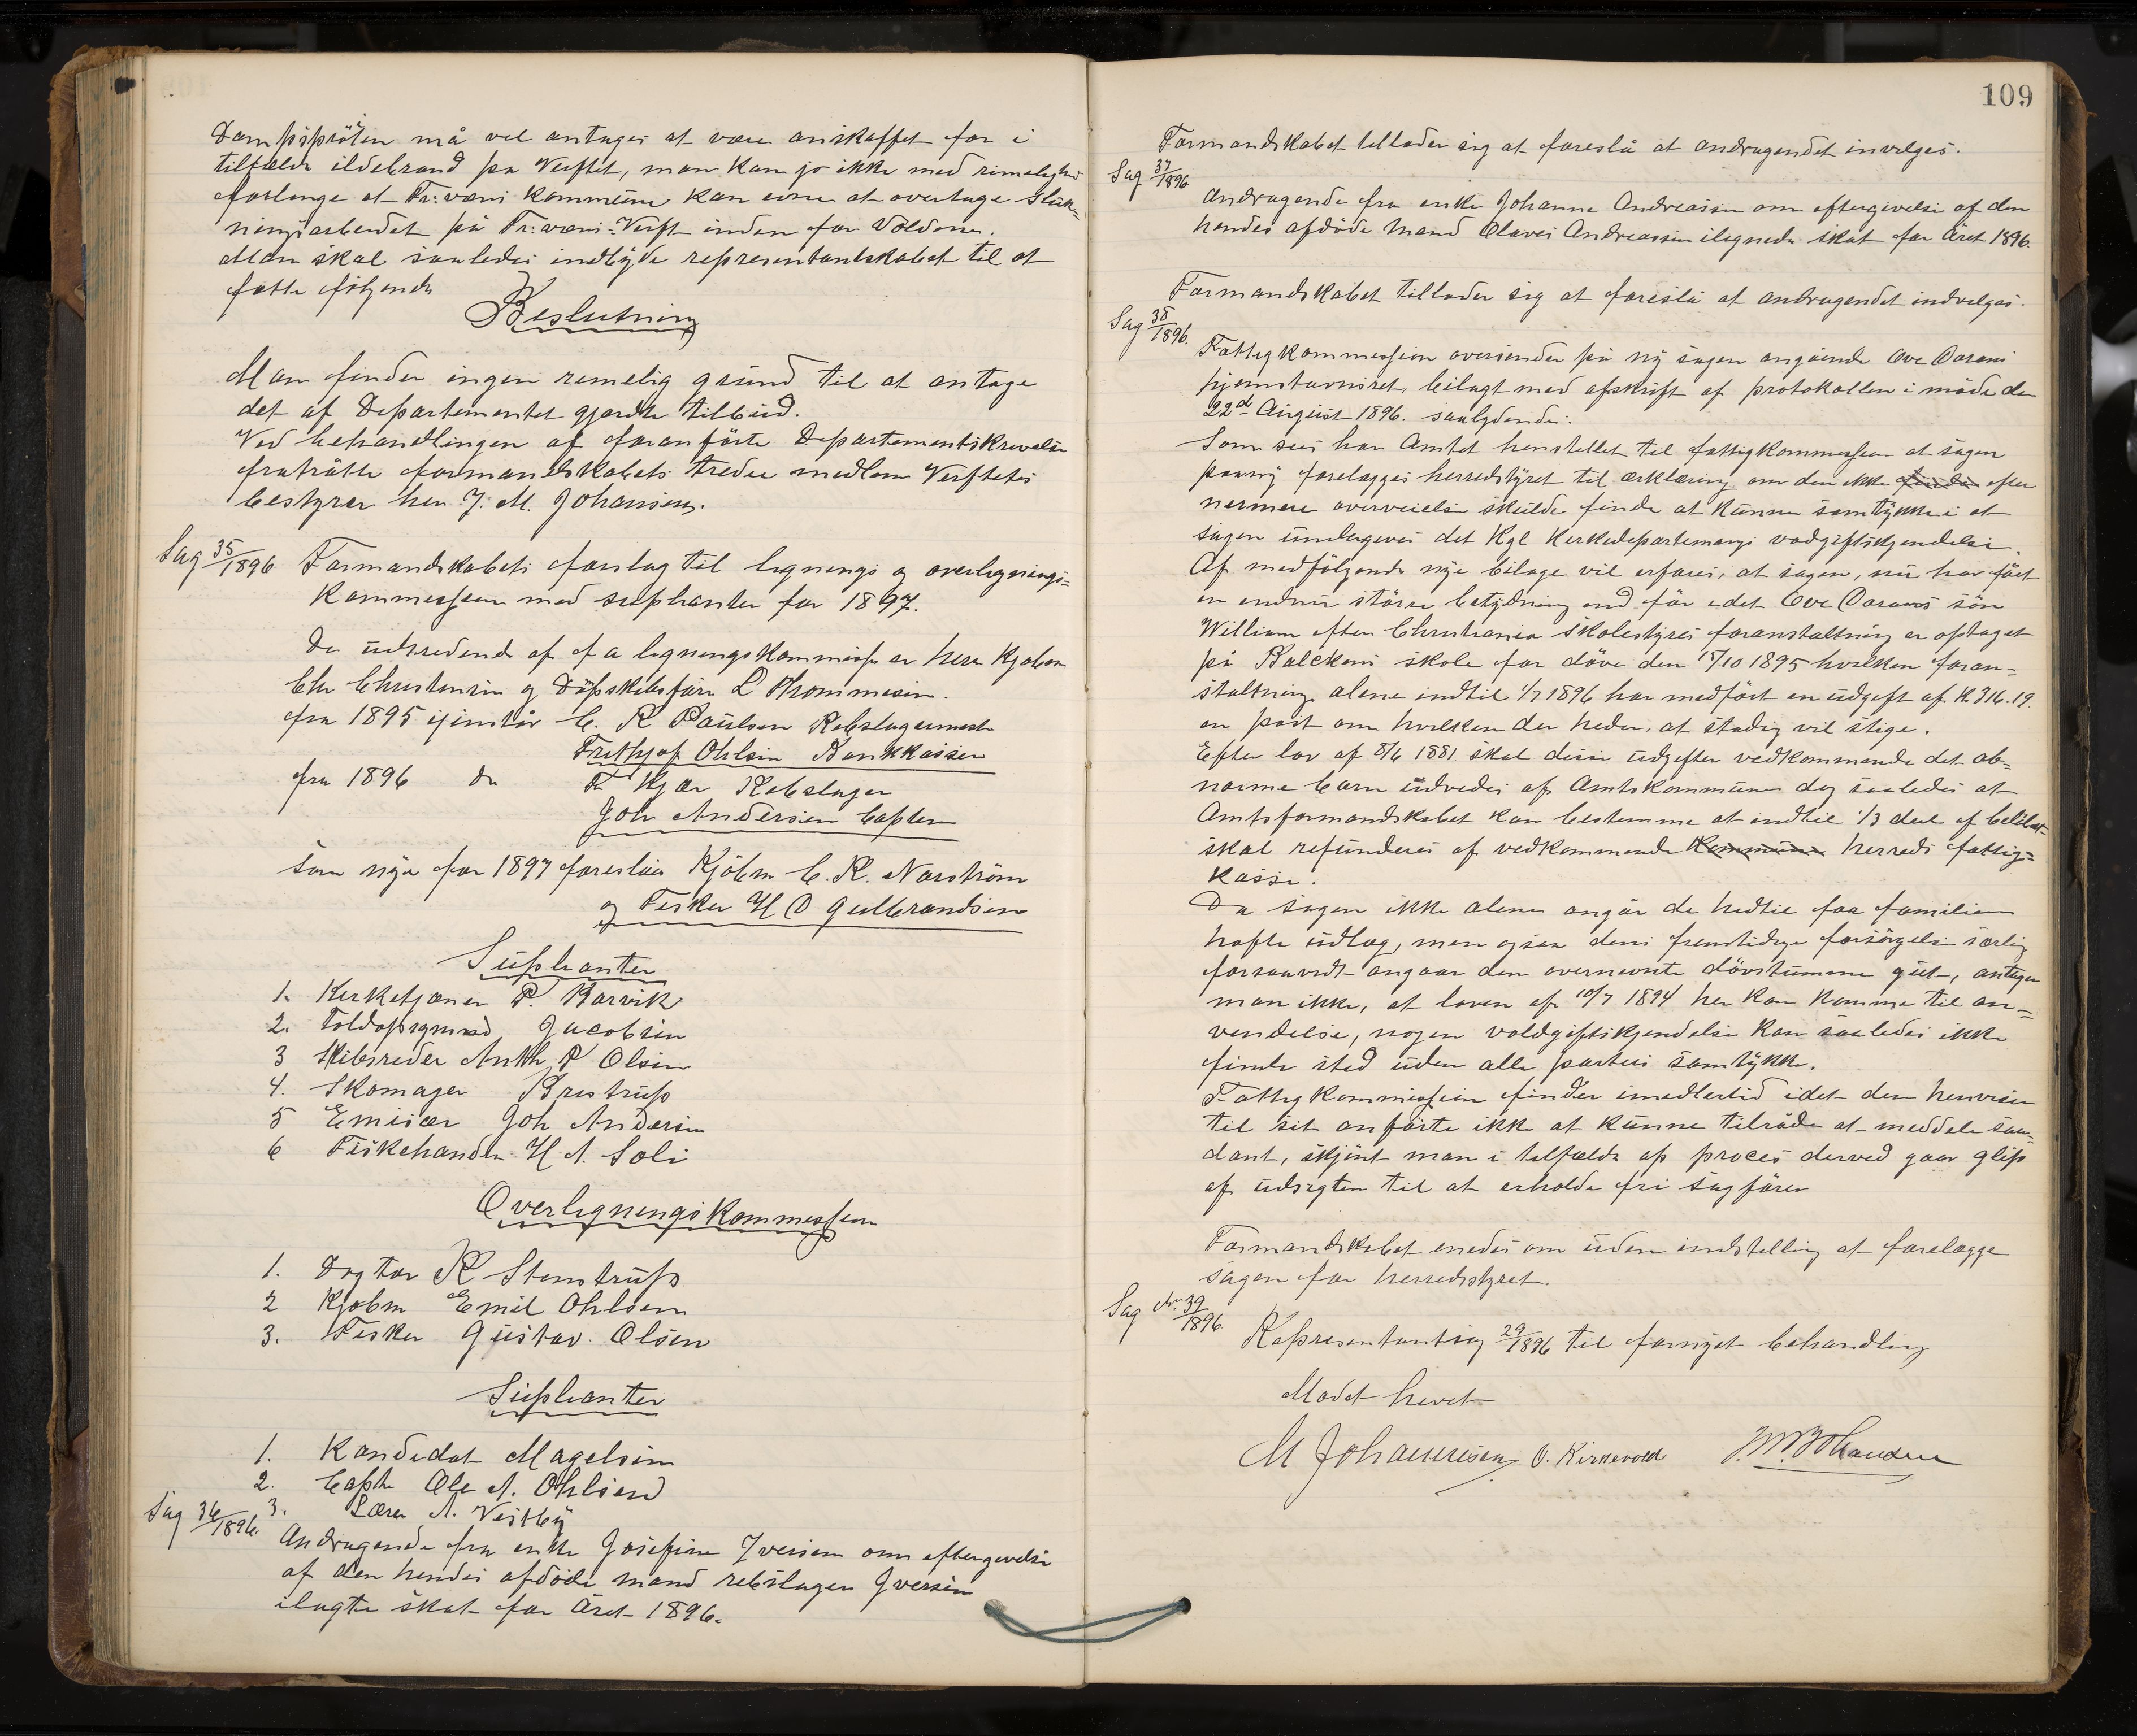 Dampsprøiten må vel antages at være anskaffet for i
tilfælde ildebrand på Verftet, man kan jo ikke med rimelighed
forlange at Fr:værns kommune kan evne at overtage Sluk-
ningsarbeidet på Fr:værns Verft inden for Voldene.
Man skal saaledes indbyde representantskabet til at
fatte følgende
Beslutning
Man finder ingen remelig grund til at antage
det af Departementet gjordte tilbud.
Ved behandlingen af foranførte Departementskrivelse
fratrådte formandskabets tredie medlem Verftets
bestyrer herr J. M. Johansen.
Sag 35/1896 Formandskabets forslag til lignings og overlignings-
Kommission med suplianter for 1897.
De udtredende af fa ligningskommission er herr Kjøbm
Chr Christensen og Skibsfører L Thommesen.
fra 1895 gjenstår C. R Paulsen Rebslagermester
Frithjof Ohlsen Bankkasser
fra 1896 do Fr Kjær Rebslager
Joh Andersen Captein
som nye for 1897 foreslåes Kjøbm C. R. Narström
og Fisker H O Gulbrandsen
Suplianter
1. Kerketjæner P. Karvik
2. Toldopsynsmd Jacobsen
3 Skibsreder Anth P Olsen
4. Skomager Brestrup
5 Emisær Joh Andersen
6 Fiskehandler H A. Soli
Overligningskommission
1. Dogtor R Stenstrup
2 Kjøbm Emil Ohlsen
3. Fisker Gustav. Olsen
Suplianter
1. Kandidat Magelsen
2. Capt Ole A. Ohlsen
3. Lærer A. Vestby
Sag 36/1896.
Andragende fra enke Josefine Iversen om eftergivelse
af den hendes afdøde mand rebslager Iversen
ilagte skat for Året 1896.
109
Formandskabet tillader sig at foreslå at andragendet invilges.
Sag 37/1896
Andragende fra enke Johanne Andreassen om eftergivelse af den
hendes afdøde Mand Olaves Andreassen ilignede skat for Året 1896.
Formandskabet tillader sig at foreslå at andragendet indvilges.
Sag 38/1896.
Fattigkommissionen oversender på ny sagen angående Ove
hjemstavnsret, bilagt med afskrift af protokollen i møde den
22de August 1896. saalydende:
Som sees har Amtet henstillet til fattigkommissionen at sagen
paany forelægges herredstyret til erklæring om den ikke finder efter
nermere overveielse skulde finde at kunne samtykke i at
sagen undergives det Kgl Kirkedepartements voldgiftskjendelse.
Af medfølgende nye bilage vil erfares, at sagen, nu har fået
en endnu større betydning end før idet Ove søn
William efter Christiania skolestyres foranstaltning er optaget
på Balchens skole for døve den 15/10 1895 hvilken foran-
staltning alene indtil 1/7 1896 har medført en udgift af Kr 316.19.
en post om hvilken der heder, at stadig vil stige.
Efter lov af 8/6 1881 skal disse udgifter vedkommende det ab-
norme barn udredes af Amtskommunen dog saaledes at
Amtsformandskabet kan bestemme at indtil 1/3 deel af beløbet
skal refunderes af vedkommende Kommune herreds fattig-
kasse.
Da sagen ikke alene angår de hedtil faa familien
hafte udlæg, men ogsaa dens fremtidige forsørgelse særlig
forsaavidt angaar den overnevnte døvstumme gut, antager
man ikke, at loven af 10/7 1894 her kan komme til an-
vendelse, nogen voldgiftskjendelse kan saaledes ikke
finde sted uden alle parters samtykke.
Fattigkommissionen finder imedlertid idet den henviser
til sit anførte ikke at kunne tilråde at meddele saa-
dant, skjønt man i tilfælde af proces derved gaar glip
af udsigten til at erholde fri sagfører
Formandskabet enedes om uden indstilling at forelægge
sagen for herredsstyret.
Sag Nr. 39/1896
Representantsag 29/1896 til fornyet behandling
Mødet hævet
M Johannesen O. Kirkevold J. M. Johansen